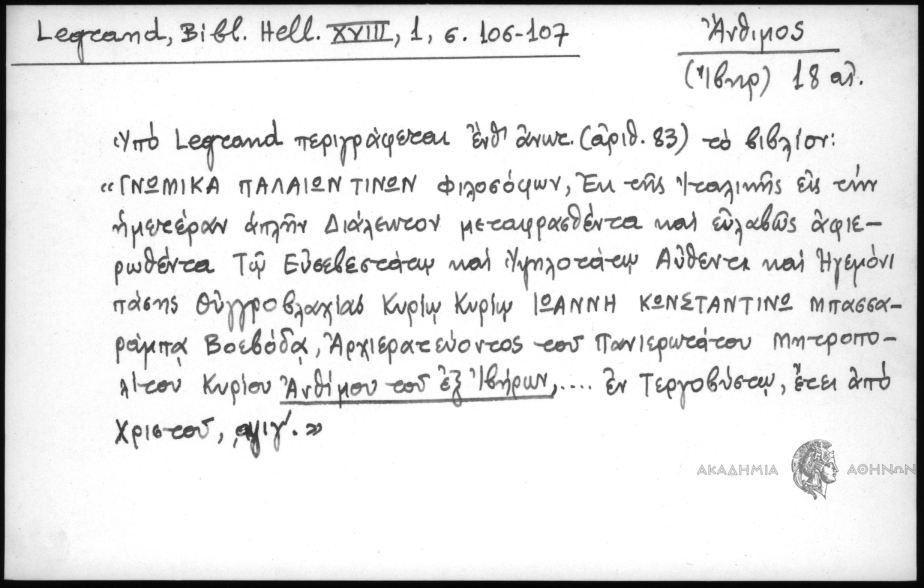 Legrand, Bibl. Hell. XVIII, 1, σ. 106-107
Ἄνθιμος
(Ἴβηρ) 18 αἰ.
Ὑπό Legrand περιγράφεται ἔνθ' ἀνωτ. (ἀριθ. 83) τό βιβλίον:
«ΓΝΩΜΙΚΑ ΠΑΛΑΙΩΝ ΤΙΝΩΝ Φιλοσόφων, Ἐκ τῆς Ἰταλικῆς εἰς τήν
ἡμετέραν ἁπλῆν Διάλεκτον μεταφρασθέντα καί εὐλαβῶς ἀφιε-
ρωθέντα Τῷ Εὐσεβεστάτῳ καί Ὑψηλοτάτῳ Αὐθέντῃ καί Ἡγεμόνι
πάσης Οὐγγροβλαχίας Κυρίῳ Κυρίῳ ΙΩΑΝΝΗ ΚΩΝΣΤΑΝΤΙΝΩ Μπασσα-
ράμπᾳ Βοεβόδᾳ, Ἀρχιερατεύοντος τοῦ Πανιερωτάτου Μητροπο-
λίτου Κυρίου Ἀνθίμου τοῦ ἐξ Ἰβήρων, .... ἐν Τεργοβύστῳ, ἔτει ἀπό
Χριστοῦ, ͵αψιγ'.»
ΑΚΑΔΗΜΙΑ ΑΘΗΝΩΝ